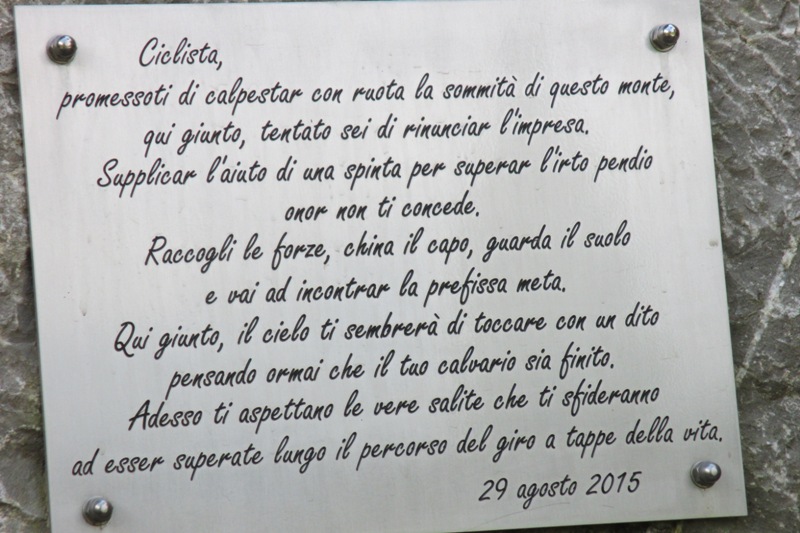 Ciclista,
promessoti di calpestar con ruota la sommità di questo monte,
qui giunto, tentato sei di rinunciar l'impresa.
Supplicar l'aiuto di una spinta per superar l'irto pendio
onor non ti concede.
Raccogli le forze, china il capo, guarda il suolo
e vai ad incontrar la prefissa meta.
Qui giunto, il cielo ti sembrerà di toccare con un dito
pensando ormai che il tuo calvario sia finito.
Adesso ti aspettano le vere salite che ti sfideranno
ad esser superate lungo il percorso del giro a tappe della vita.
29 agosto 2015